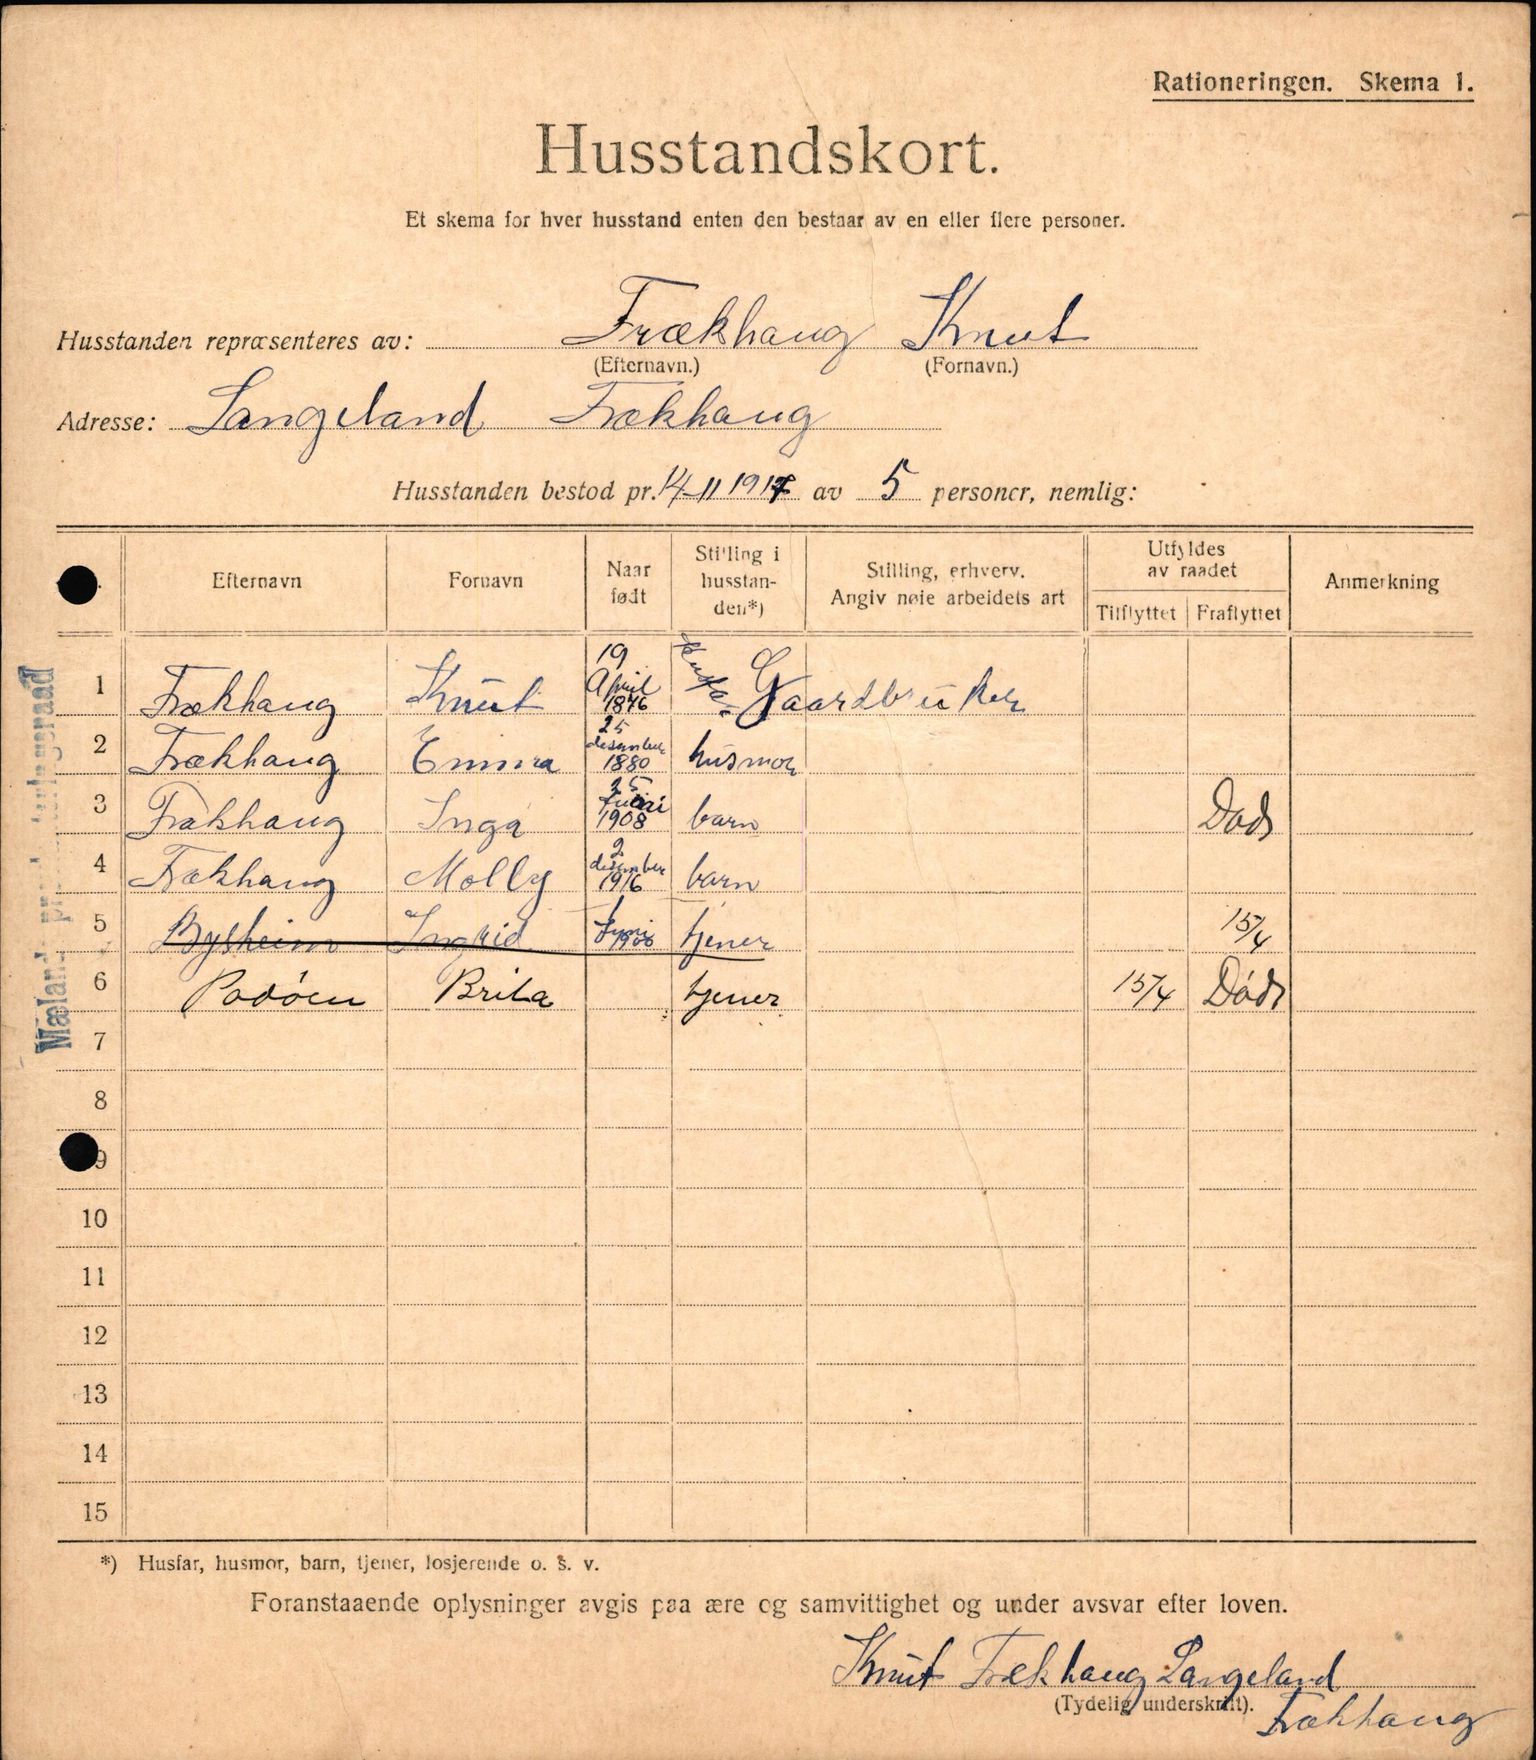 Rationeringen. Skema 1.
Husstandskort.
Et skema for hver husstand enten den bestaar av en eller flere personer.
Husstanden repræsenteres av: Frækhaug Knut
(Efternavn.) (Fornavn.)
Adresse: Langeland Frækhaug
Husstanden bestod pr. 14-11 1917 av 5 personer, nemlig:
Efternavn Fornavn Naar født Stilling i husstanden*) Stilling, erhverv. Angiv nøie arbeidets art Utfyldes av raadet Tilflyttet Fraflyttet Anmerkning
1 Frækhaug Knut 19 April 1846 Gaardbruker
2 Frækhaug Emma 25 desember 1880 husmor
3 Frækhaug Inga 25 1908 barn Død
4 Frækhaug Molly 2 desember 1916 barn
5 Bysheim Ingrid tjener 15/4
6 Brita tjener 15/4 Død
7
8
9
10
11
12
13
14
15
Mæland
*) Husfar, husmor, barn, tjener, losjerende o. s. v.
Foranstaaende oplysninger avgis paa ære og samvittighet og under avsvar efter loven.
Knut Frækhaug Langeland
(Tydelig underskrift).
Frækhaug